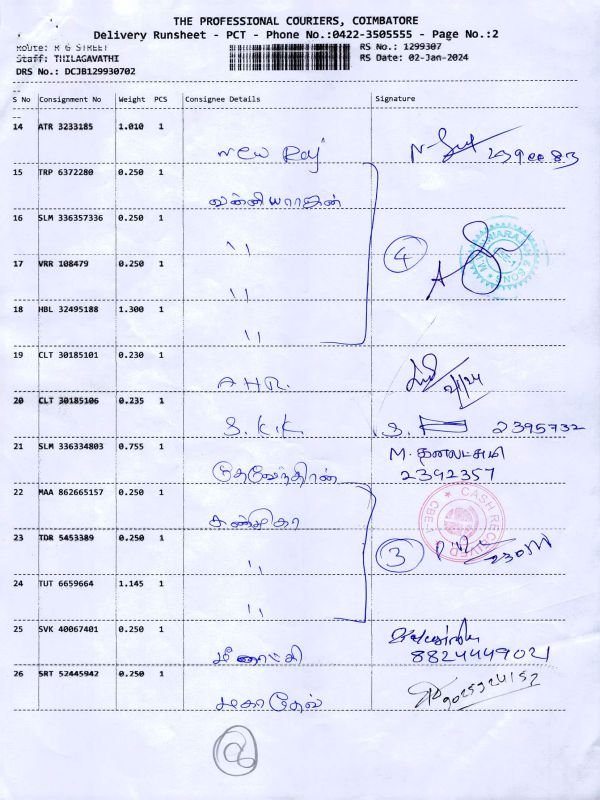 THE PROFESSIONAL COURIERS, COIMBATORE
Delivery Runsheet - PCT - Phone No.:0422-3505555 - Page No.:2
Route: R G STREET RS No.: 1299307
Staff: THILAGAVATHI RS Date: 02-Jan-2024
DRS No.: DCJB129930702
S No Consignment No Weight PCS Consignee Details Signature
14 ATR 3233185 1.010 1
New Raj
15 TRP 6372280 0.250 1
16 SLM 336357336 0.250 1
" 4
17 VRR 108479 0.250 1
"
18 HBL 32495188 1.300 1
"
19 CLT 30185101 0.230 1
A H R. 2/1/24
20 CLT 30185106 0.235 1
S. K. K S. 2395732
21 SLM 336334803 0.755 1 M. தனலட்சுமி
தேவேந்திரன் 2392357
22 MAA 862665157 0.250 1
CASH RECEIVED
23 TDR 5453389 0.250 1
" 3
24 TUT 6659664 1.145 1
"
25 SVK 40067401 0.250 1
மீனாட்சி 8824449021
26 SRT 52445942 0.250 1
மகாதேவ் 9025924152